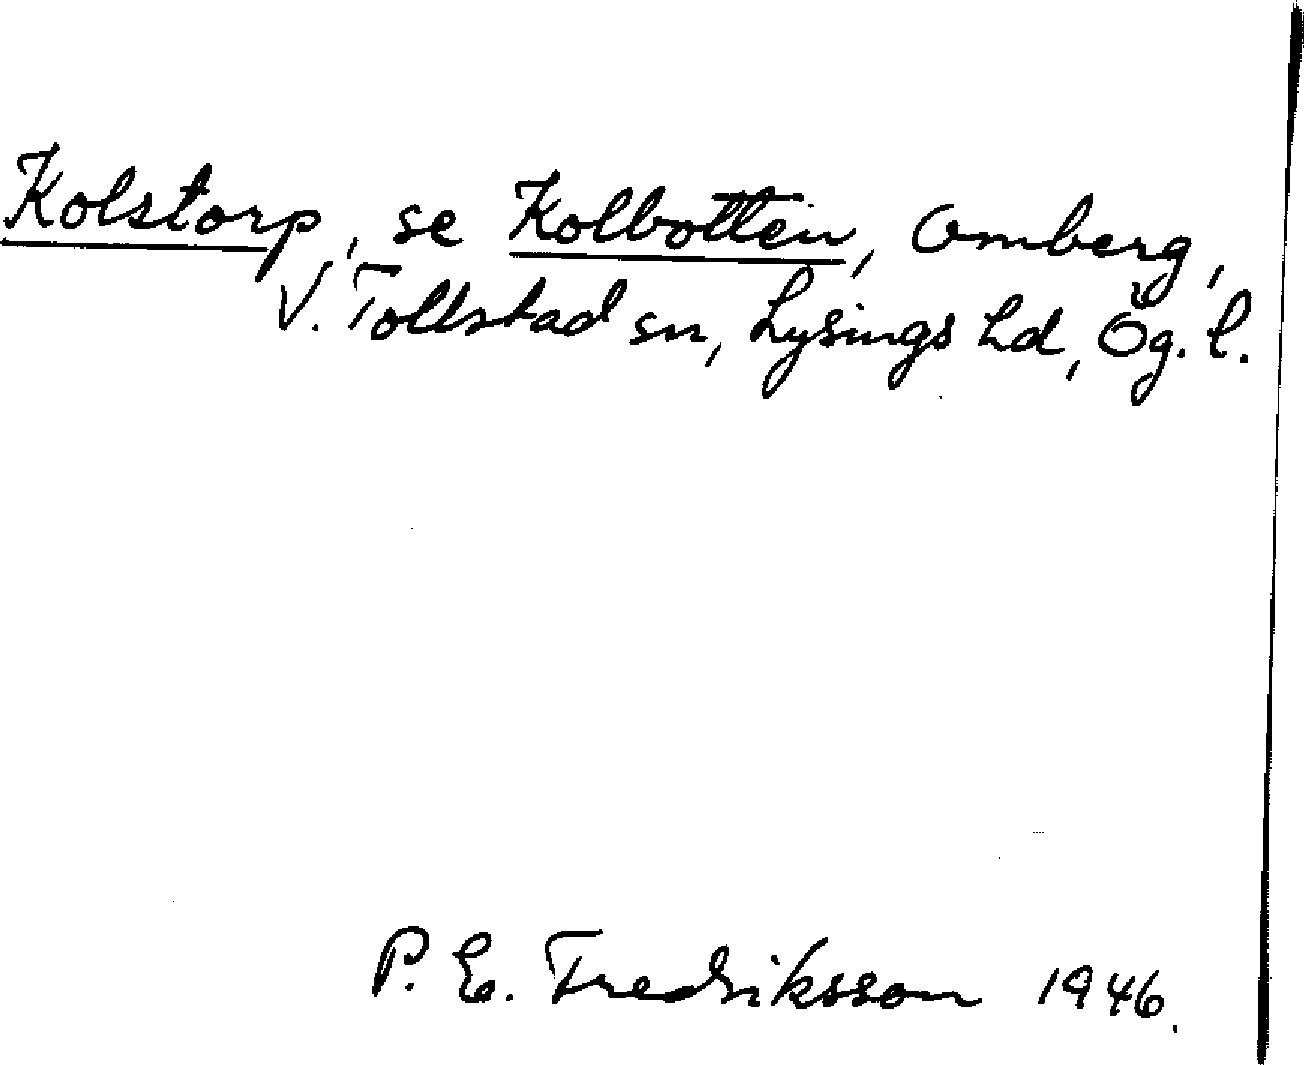 Kolstorp, se Kolbotten, Omberg,
V. Tollstad sn, Lysings hd, Ög. l.
P. E. Fredriksson 1946.